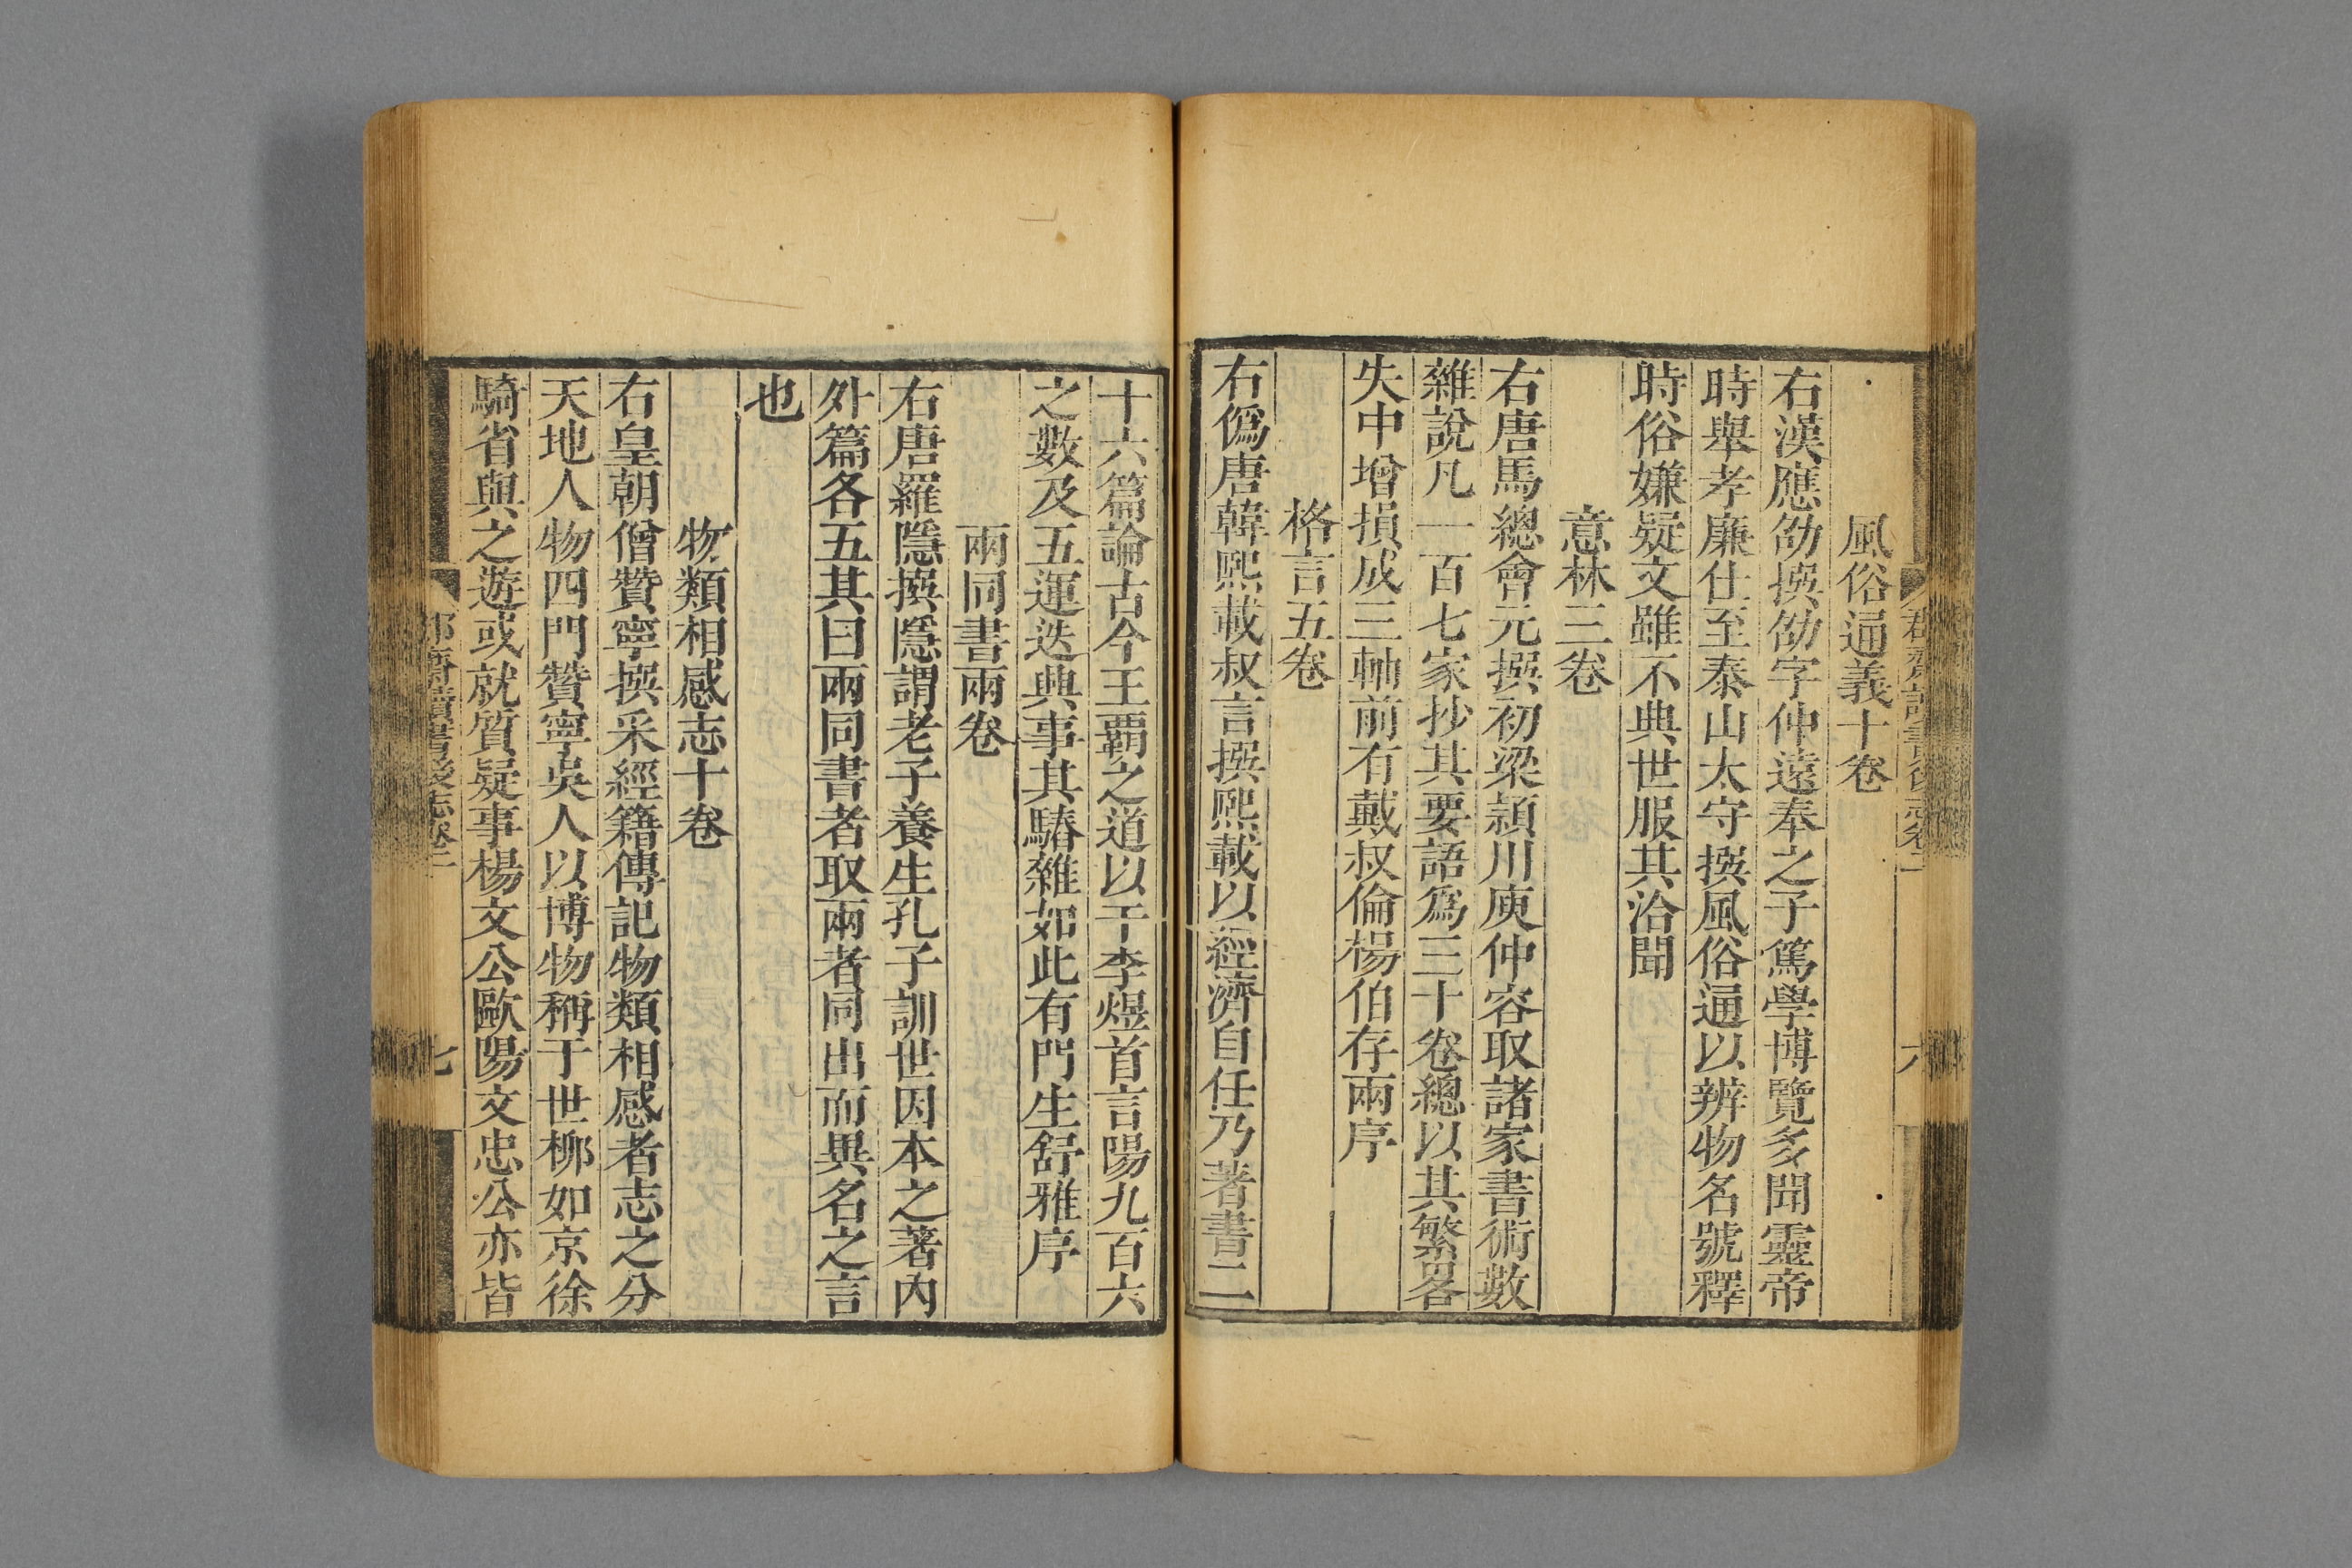 風俗通義十卷
右漢應劭撰劭字仲遠奉之子篤學博覽多聞靈帝
時舉孝廉仕至泰山太守撰風俗通以辨物名號釋
時俗嫌疑文雖不典世服其洽聞
意林三卷
右唐馬總會元撰初梁潁川庾仲容取諸家書術數
雜說凡一百七家抄其要語爲三十卷總以其繁畧
失中增損成三軸前有戴叔倫楊伯存兩序
格言五卷
右僞唐韓熙載叔言撰熙載以經濟自任乃著書二
十六篇論古今王覇之道以干李煜首言陽九百六
之數及五運迭興事其駁雜如此有門生舒雅序
兩同書兩卷
右唐羅隱撰隱謂老子養生孔子訓世因本之著內
外篇各五其曰兩同書者取兩者同出而異名之言
也
物類相感志十卷
右皇朝僧贊寧撰采經籍傳記物類相感者志之分
天地人物四門贊寧吳人以博物稱于世柳如京徐
騎省與之遊或就質疑事楊文公歐陽文忠公亦皆
郡齋讀書後志卷二
七